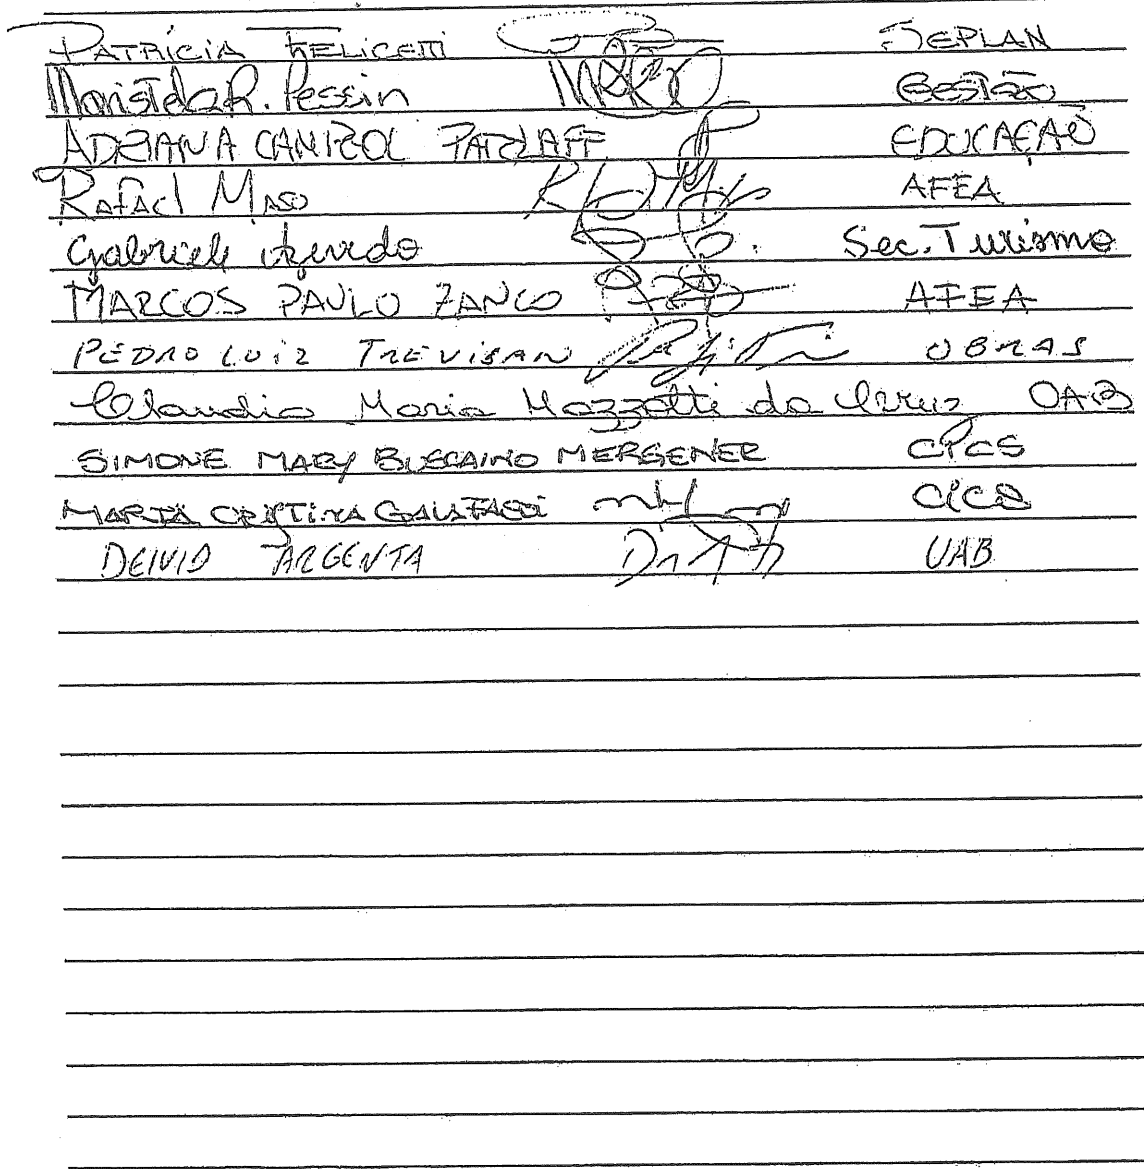 PATRÍCIA FELICETTI SEPLAN
Maristela R. Pessin GESTÃO
ADRIANA CANROL PARLAFF EDUCAÇÃO
Rafael Maso AFEA
Gabriele Azevedo Sec. Turismo
MARCOS PAULO ZANCO AFEA
PEDRO LUIZ TREVISAN OBRAS
Claudia Maria Mazzotti da Cruz OAB
SIMONE MARY BUSCAINO MERGENER CPCS
MARTA CRISTINA CPCS
DEIVID ARGENTA UAB